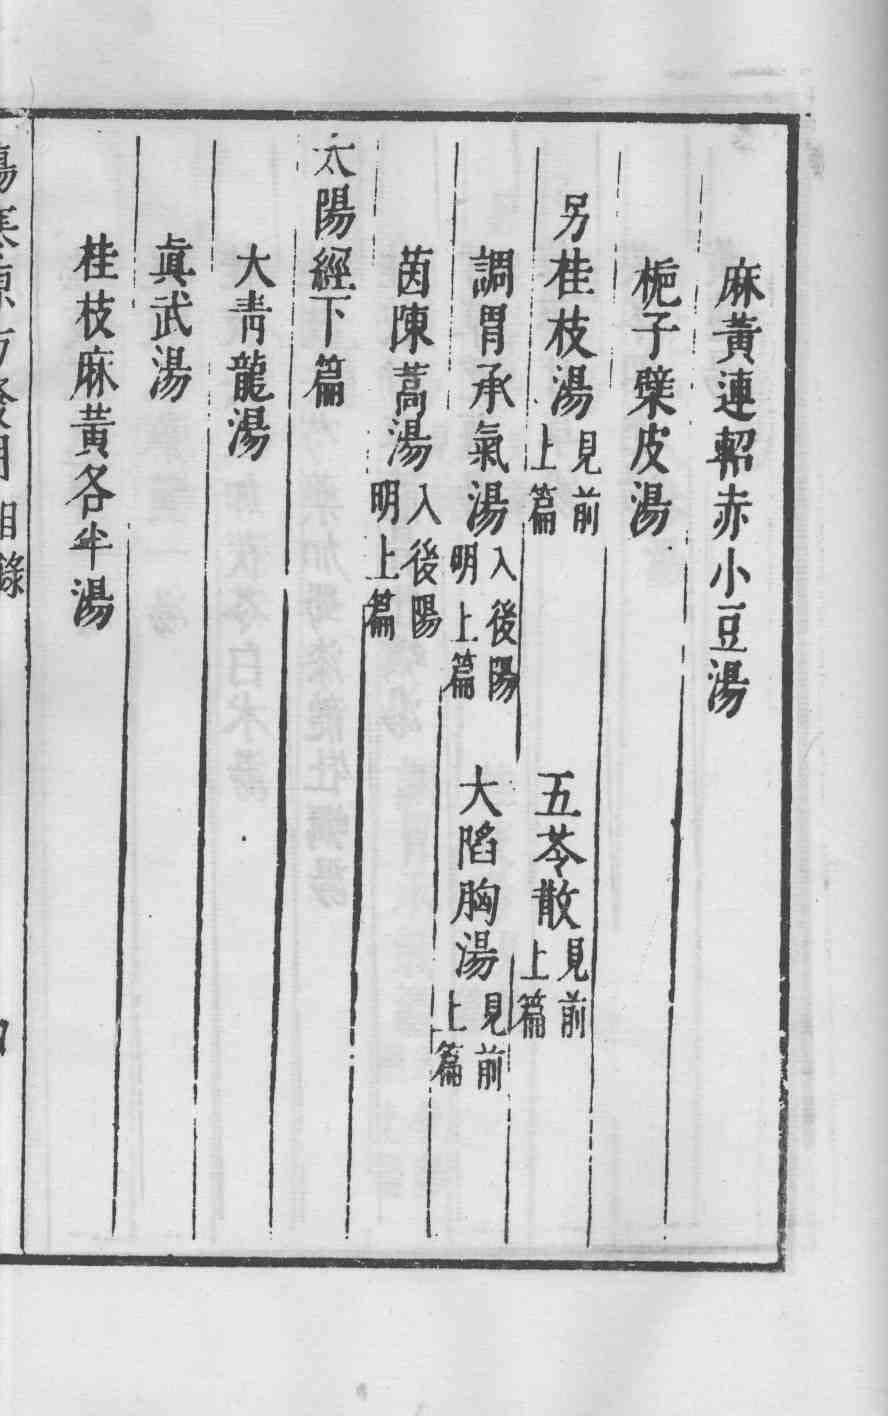 麻黃連軺赤小豆湯
梔子檗皮湯
另桂枝湯見前上篇 五苓散見前上篇
調胃承氣湯入後陽明上篇 大䧟胸湯見前上篇
茵陳蒿湯入後陽明上篇
太陽經下篇
大靑龍湯
眞武湯
桂枝麻黃各半湯